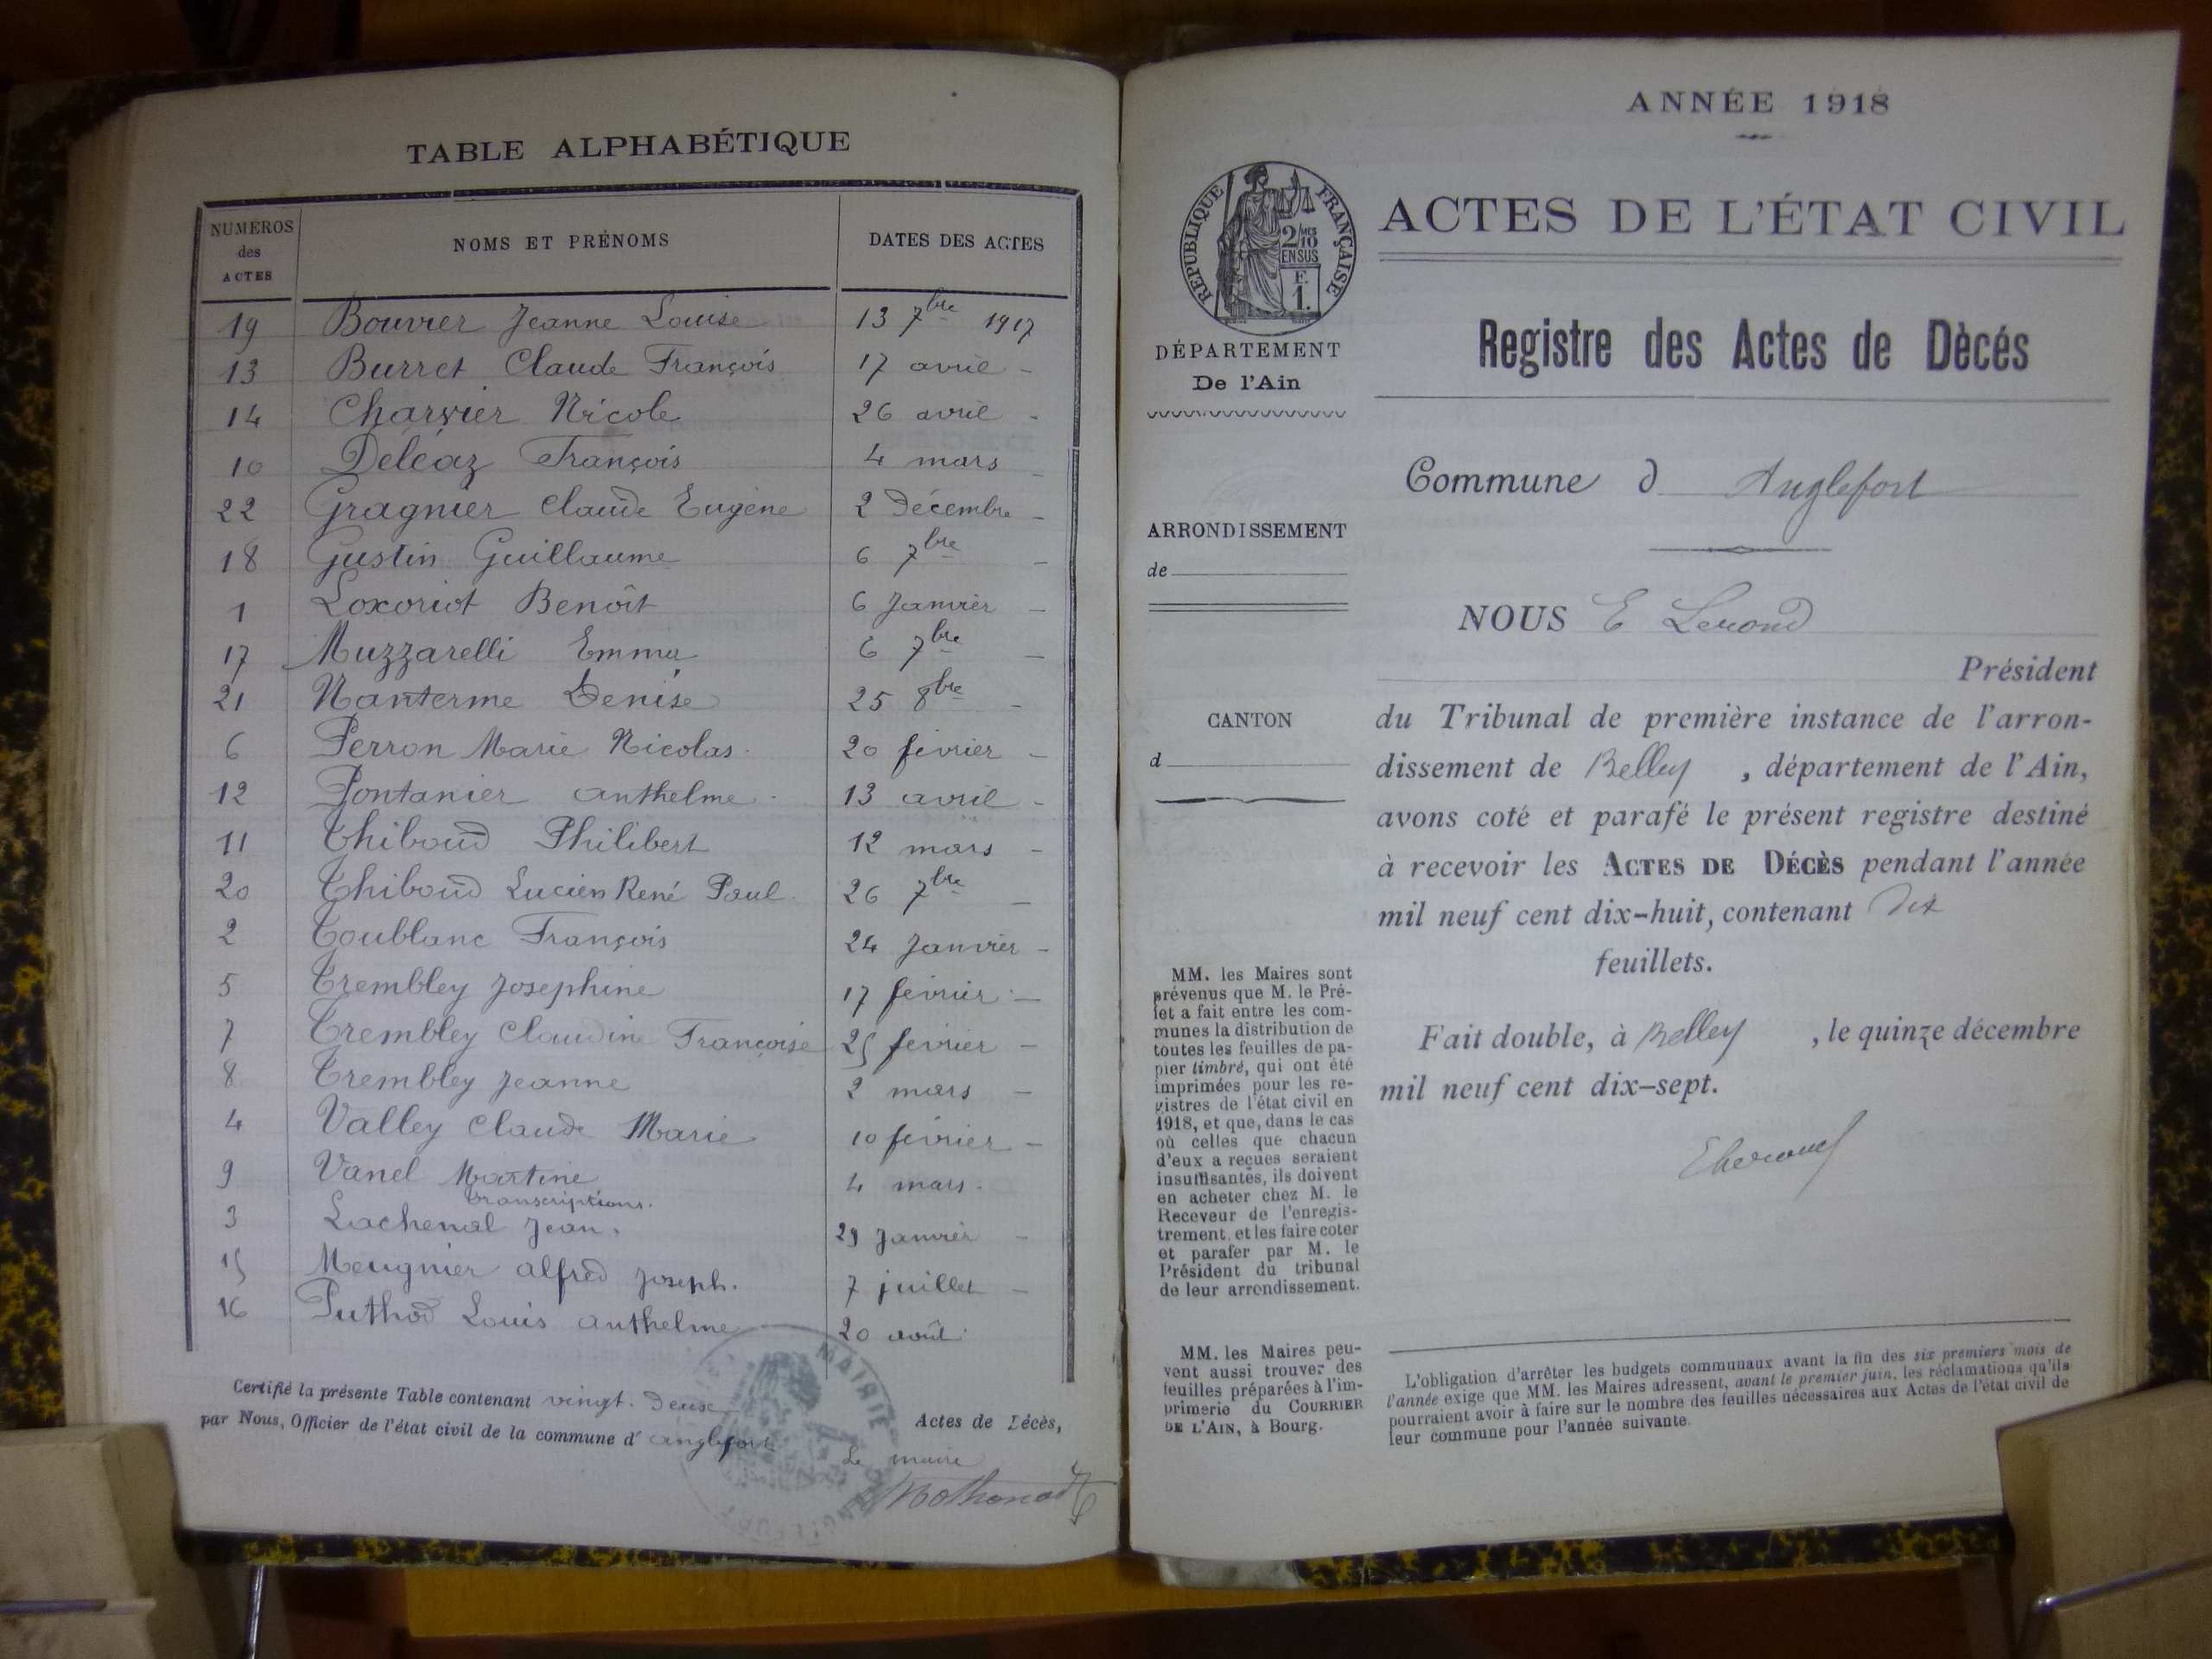 TABLE ALPHABÉTIQUE
NUMÉROS des ACTES NOMS ET PRÉNOMS DATES DES ACTES
19 Bouvier Jeanne Louise 13 7bre 1917
13 Burret Claude François 17 avril -
14 Charvier Nicole 26 avril -
10 Deléaz François 4 mars -
22 Gragnier Claude Eugène 2 Décembre -
18 Gustin Guillaume 6 7bre -
1 Loxoriot Benoît 6 Janvier -
17 Muzzarelli Emma 6 7bre -
21 Nanterme Denise 25 8bre -
6 Perron Marie Nicolas 20 février -
12 Pontanier anthelme 13 avril -
11 Thiboud Philibert 12 mars -
20 Thiboud Lucien René Paul 26 7bre -
2 Toublanc François 24 Janvier -
5 Trembley Josephine 17 février -
7 Trembley Claudine Françoise 25 février -
8 Trembley Jeanne 2 mars -
4 Valley Claude Marie 10 février -
9 Vanel Martine 4 mars -
transcriptions.
3 Lachenal Jean. 29 Janvier -
15 Meugnier alfred Joseph. 7 juillet -
16 Puthod Louis anthelme 20 août
Certifié la présente Table contenant vingt-deux Actes de Décès,
par Nous, Officier de l'état civil de la commune d' anglefort
Le maire
MAIRIE
ANNÉE 1918
RÉPUBLIQUE FRANÇAISE
2/10 MES
EN SUS
F.
1.
ACTES DE L'ÉTAT CIVIL
DÉPARTEMENT
De l'Ain
Registre des Actes de Dècés
Commune d Anglefort
ARRONDISSEMENT
de
CANTON
d
NOUS E
Président
du Tribunal de première instance de l'arron-
dissement de Belley , département de l'Ain,
avons coté et parafé le présent registre destiné
à recevoir les ACTES DE DÉCÈS pendant l'année
mil neuf cent dix-huit, contenant Dix
feuillets.
Fait double, à Belley , le quinze décembre
mil neuf cent dix-sept.
MM. les Maires sont
prévenus que M. le Pré-
fet a fait entre les com-
munes la distribution de
toutes les feuilles de pa-
pier timbré, qui ont été
imprimées pour les re-
gistres de l'état civil en
1918, et que, dans le cas
où celles que chacun
d'eux a reçues seraient
insuffisantes, ils doivent
en acheter chez M. le
Receveur de l'enregis-
trement, et les faire coter
et parafer par M. le
Président du tribunal
de leur arrondissement.
MM. les Maires peu-
vent aussi trouver des
feuilles préparées à l'im-
primerie du COURRIER
DE L'AIN, à Bourg.
L'obligation d'arrêter les budgets communaux avant la fin des six premiers mois de
l'année exige que MM. les Maires adressent, avant le premier juin, les réclamations qu'ils
pourraient avoir à faire sur le nombre des feuilles nécessaires aux Actes de l'état civil de
leur commune pour l'année suivante.